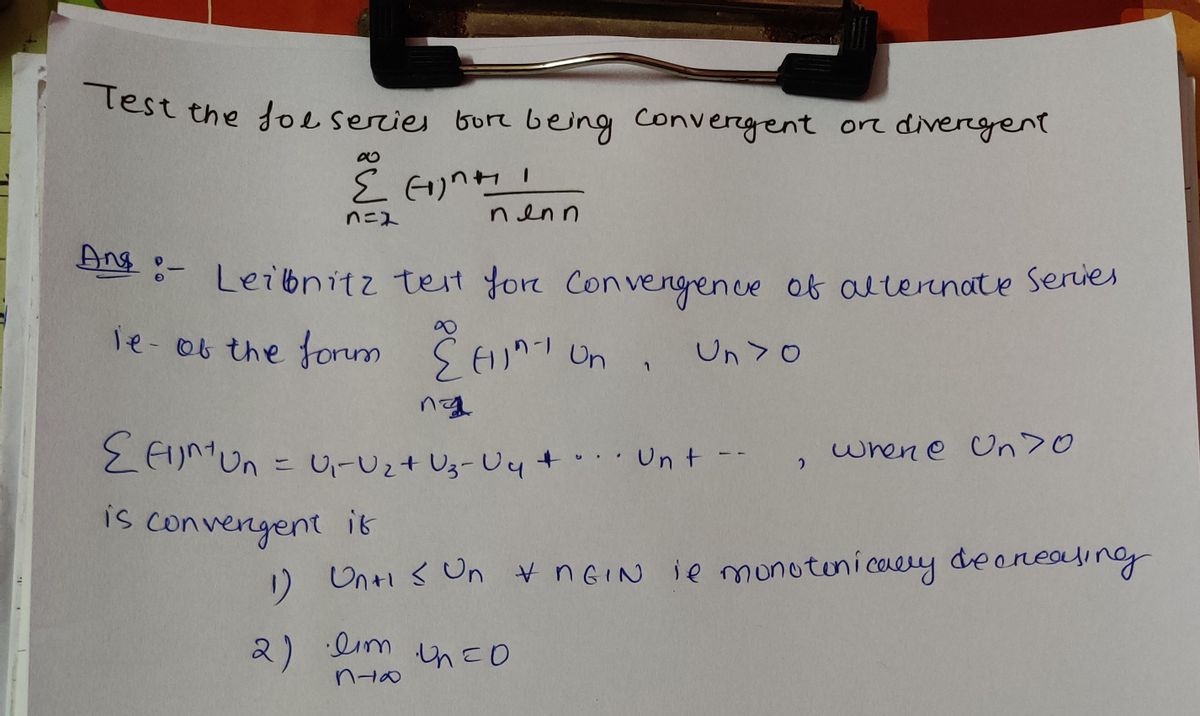 Test the fol series for being convergent or divergent
∞
Σ (-1)ⁿ⁺¹ 1
n=2 n ln n
Ans :- Leibnitz test for convergence of alternate series
ie - of the form Σ (-1)ⁿ⁻¹ Un , Un > 0
∞
n=1
Σ (-1)ⁿ⁺ Un = U₁-U₂+U₃-U₄+ ... Un + -- , where Un>0
is convergent if
1) Un+1 ≤ Un ∀ n∈IN ie monotonically decreasing
2) lim Un = 0
n→∞